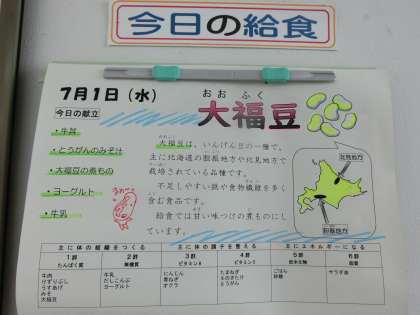 今日の給食
7月1日（水）
おおふく
大福豆
今日の献立
・牛丼
・とうがんのみそ汁
・大福豆の煮もの
・ヨーグルト
・牛乳
大福豆は、いんげん豆の一種で、
主に北海道の胆振地方や北見地方で
栽培されている品種です。
不足しやすい鉄や食物繊維を多く
含む食品です。
給食では甘い味つけの煮ものにし
ています。
北見地方
胆振地方
主に体の組織をつくる
主に体の調子を整える
主にエネルギーになる
1群
2群
3群
4群
5群
6群
たんぱく質
無機質
ビタミンA
ビタミンC
炭水化物
脂質
牛肉
けずりぶし
うすあげ
みそ
大福豆
牛乳
だしこんぶ
ヨーグルト
にんじん
青ねぎ
オクラ
たまねぎ
えのきたけ
とうがん
ごはん
砂糖
サラダ油